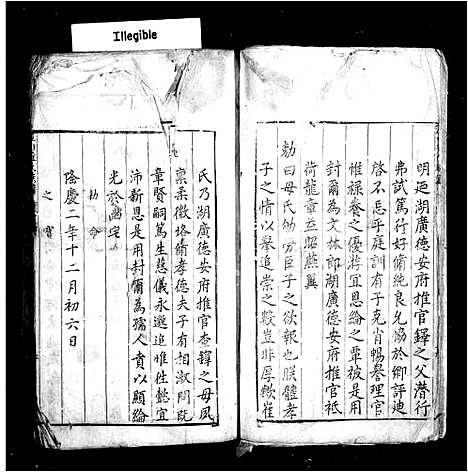 Illegible
明廷湖廣德安府推官鐸之父潛行
弗試篤行好脩純良允協於鄉評迪
啓不忘乎庭訓有子克肖暢譽理官
惟祿養之優游宜恩綸之覃被是用
封爾為文林郎湖廣德安府推官祗
荷龍章益昭燕翼
勅曰母氏劬勞臣子之欲報也朕體孝
子之情以舉追崇之數豈非厚歟崔
氏乃湖廣德安府推官查鐸之母風
稟柔徽恪脩孝德夫子有相淑問既
章賢嗣篤生慈儀永邈追惟往懿宜
沛新恩是用封爾為孺人賁以顯綸
光於幽宅
勅命
隆慶二年十二月初六日
之寶